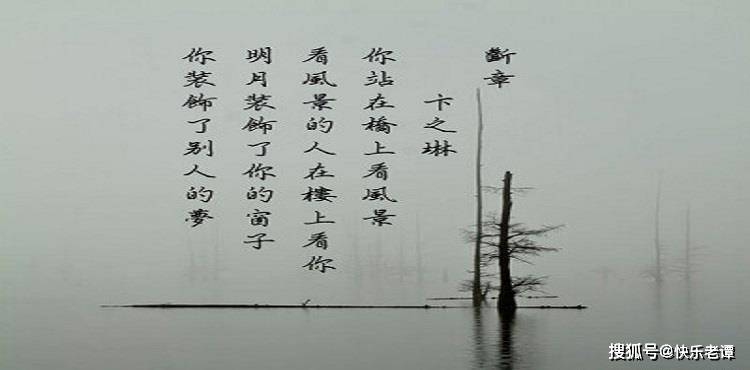 斷章
卞之琳
你站在橋上看風景
看風景的人在樓上看你
明月裝飾了你的窗子
你裝飾了别人的夢
搜狐号@快乐老谭